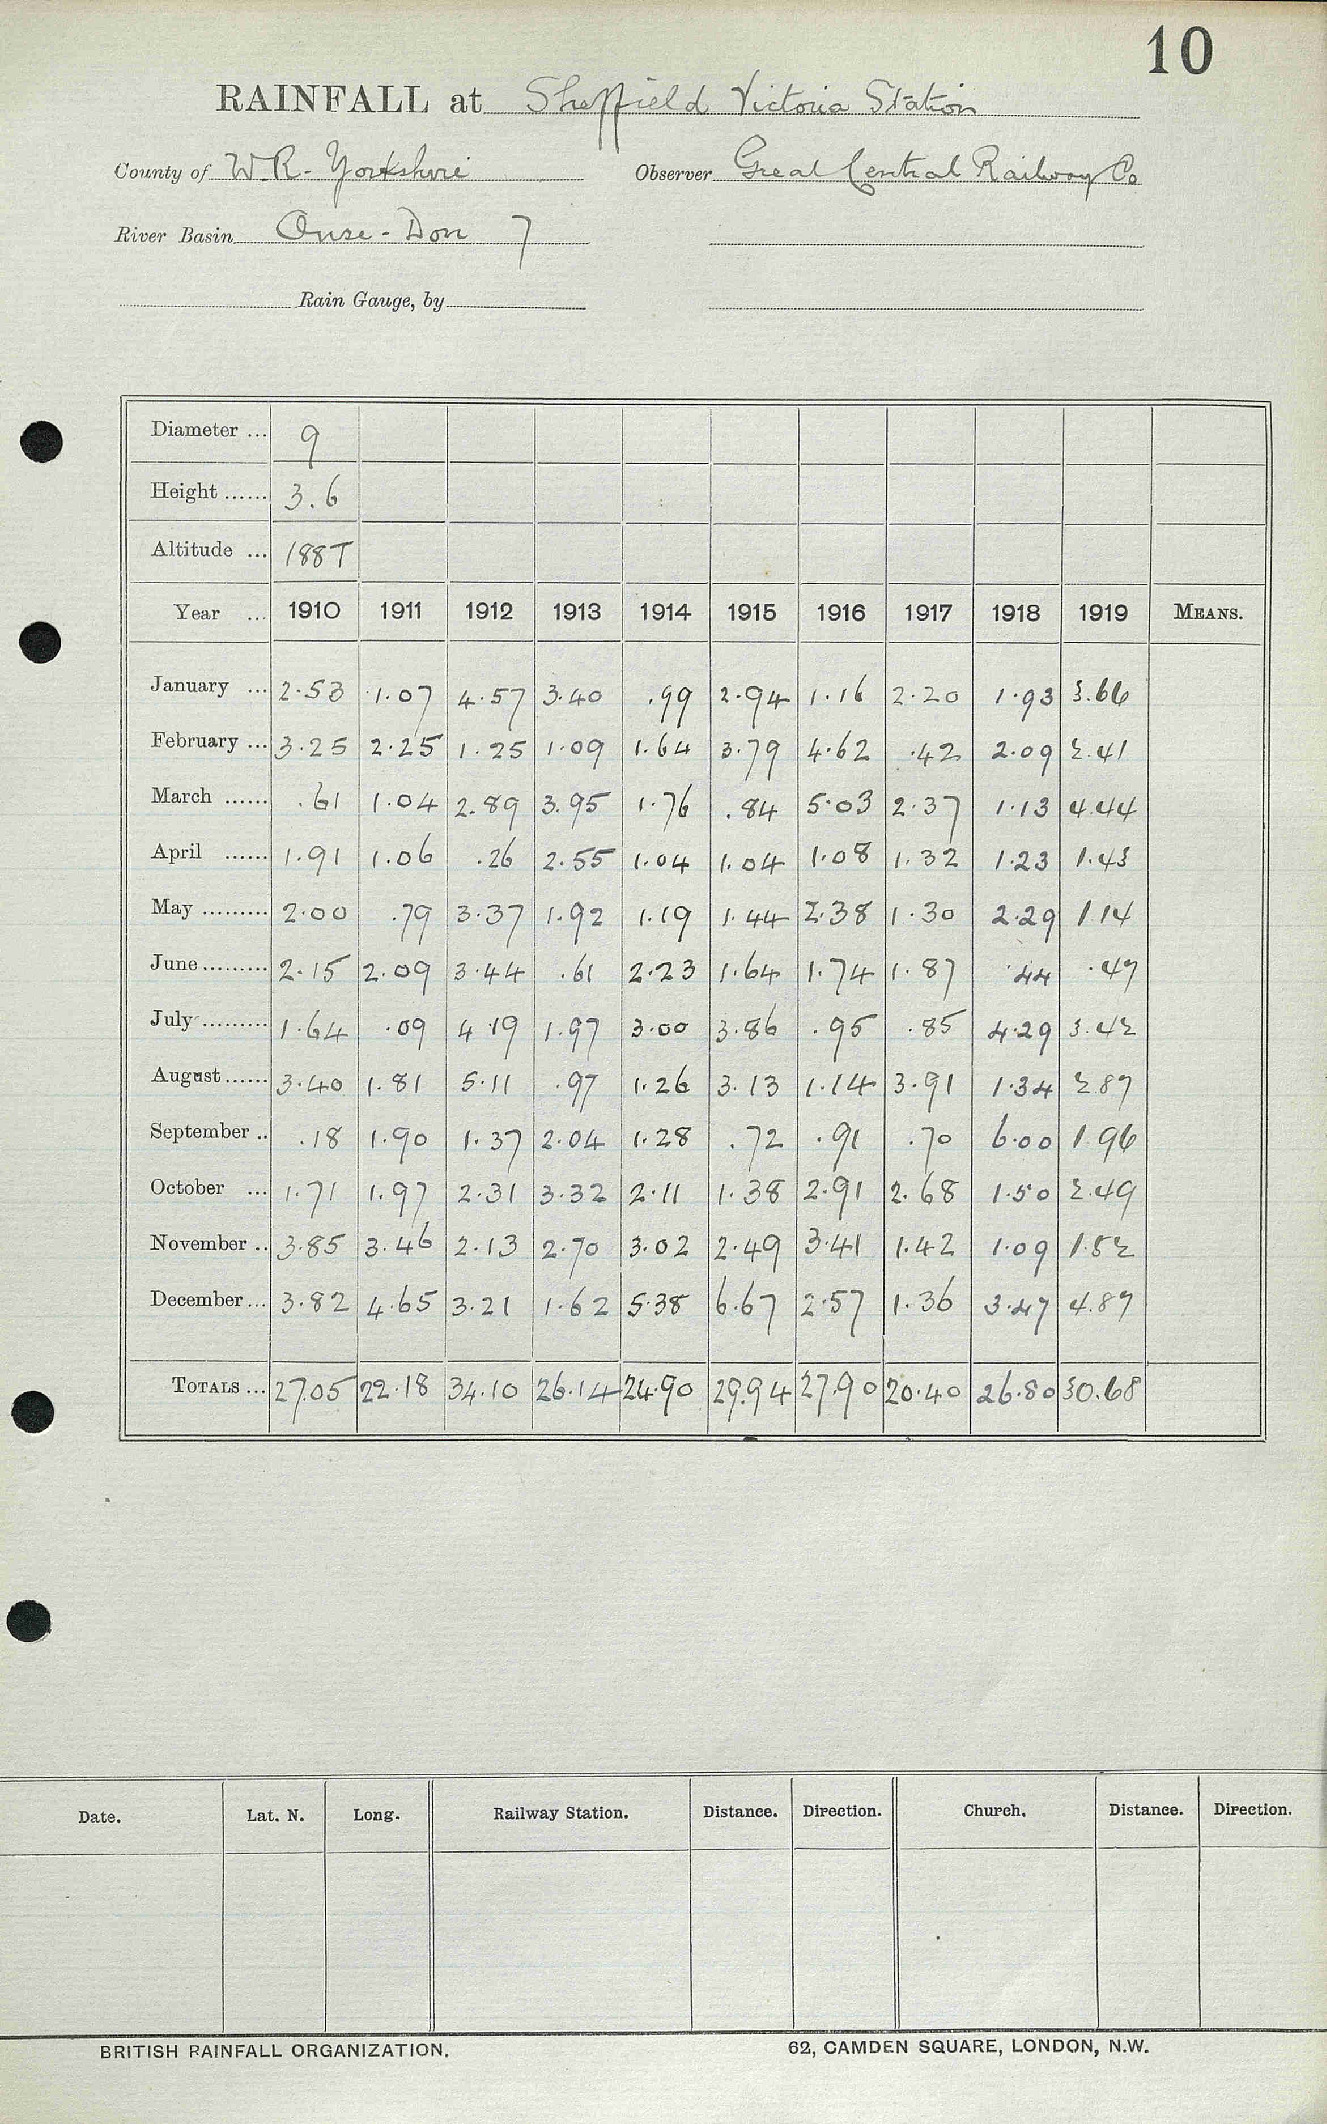 10
RAINFALL at Sheffield Victoria Station
County of W.R. Yorkshire Observer Great Central Railway Co
River Basin Ouse - Don 7
Rain Gauge, by
Diameter ... 9
Height ...... 3.6
Altitude ... 188T
Year ... 1910 1911 1912 1913 1914 1915 1916 1917 1918 1919 MEANS.
January ... 2.53 1.07 4.57 3.40 .99 2.94 1.16 2.20 1.93 3.66
February ... 3.25 2.25 1.25 1.09 1.64 3.79 4.62 .42 2.09 2.41
March ...... .61 1.04 2.89 3.95 1.76 .84 5.03 2.37 1.13 4.44
April ...... 1.91 1.06 .26 2.55 1.04 1.04 1.08 1.32 1.23 1.43
May ......... 2.00 .79 3.37 1.92 1.19 1.44 2.38 1.30 2.29 1.14
June ......... 2.15 2.09 3.44 .61 2.23 1.64 1.74 1.87 .44 .47
July ......... 1.64 .09 4.19 1.97 3.00 3.86 .95 .85 4.29 3.42
August ...... 3.40 1.81 5.11 .97 1.26 3.13 1.14 3.91 1.34 2.87
September .. .18 1.90 1.37 2.04 1.28 .72 .91 .70 6.00 1.96
October ... 1.71 1.97 2.31 3.32 2.11 1.38 2.91 2.68 1.50 2.49
November .. 3.85 3.46 2.13 2.70 3.02 2.49 3.41 1.42 1.09 1.52
December ... 3.82 4.65 3.21 1.62 5.38 6.67 2.57 1.36 3.47 4.87
TOTALS ... 27.05 22.18 34.10 26.14 24.90 29.94 27.90 20.40 26.80 30.68
Date. Lat. N. Long. Railway Station. Distance. Direction. Church. Distance. Direction.
BRITISH RAINFALL ORGANIZATION. 62, CAMDEN SQUARE, LONDON, N.W.